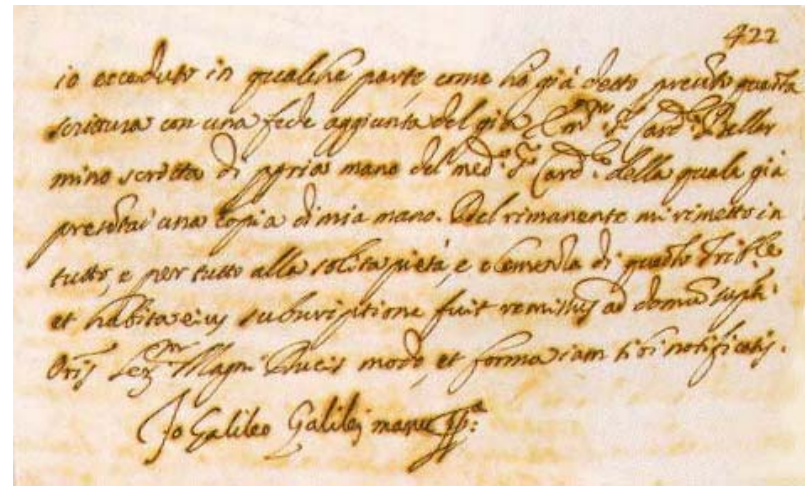 422
io ecceduto in qualche parte come ho già detto presẽto questa
scrittura con una fede aggiunta del già Emᵐᵒ Sʳ Cardˡᵉ Bellar
mino scritta di ppria mano del medᵒ Sʳ Cardˡᵉ della quale già
presẽtai una copia di mia mano. Del rimanente mi rimetto in
tutto, e per tutto alla solita pietà, e clemẽza di questo Tribˡᵉ
et habita eius subscriptione fuit remissus ad domũ supᵗⁱ
Oris Serᵐⁱ Magni Ducis modo, et forma iam sibi notificatis.
Io Galileo Galilei manu ppᵃ